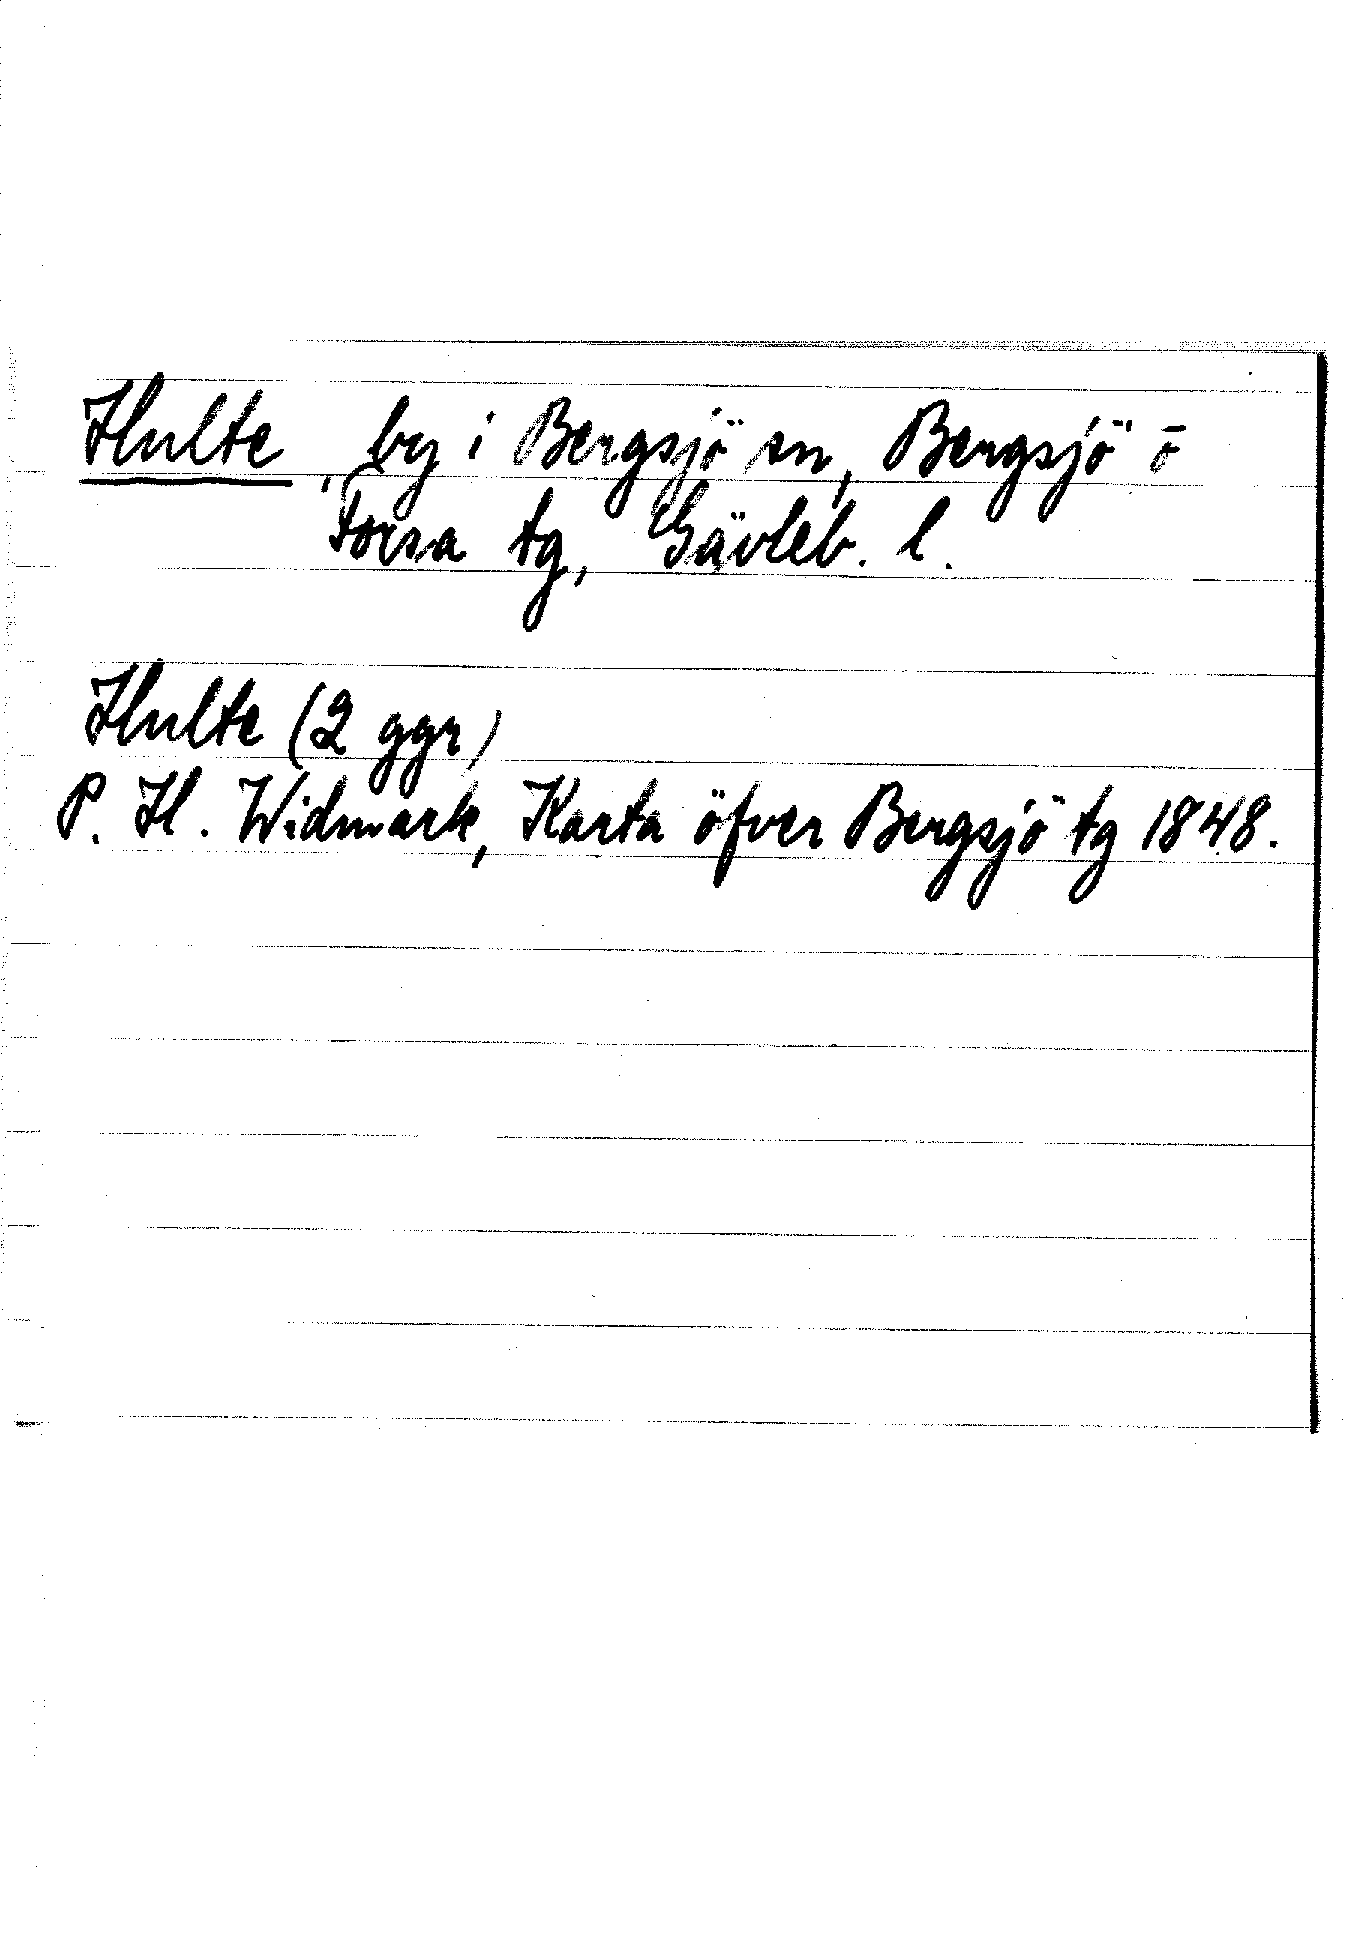 Hulte, by i Bergsjö sn, Bergsjö o
Forsa tg, Gävleb. l.
Hulte (2 ggr)
P. H. Widmark, Karta öfver Bergsjö tg 1848.